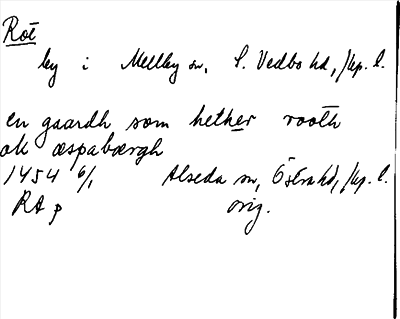 Röt
by i Mellby sn, S. Vedbo hd, Jkp. l.
en gaardh som hether rooth
ok æspabærgh
1454 6/1 Alseda sn, Östra hd, Jkp. l.
RA p orig.